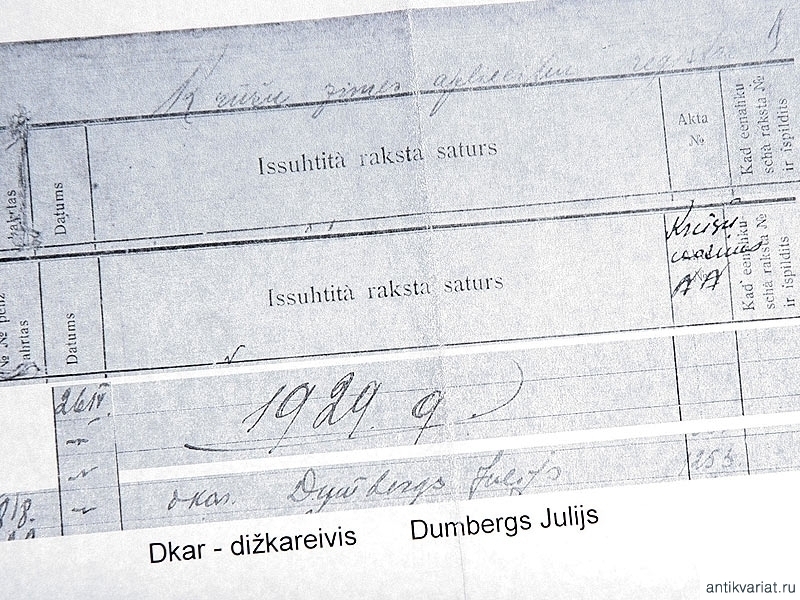 Krūšu zīmes apliecību reģistrs 1
kahrtas
Datums
Issuhtitā raksta saturs
Akta №
Kad eenahku-
schā raksta №
ir ispildits
№ № pehz
kahrtas
Datums
Issuhtitā raksta saturs
Krūšu
№ №
Kad eenahku-
schā raksta №
ir ispildits
26 IV
1929 g.
818.
dkar. Dumbergs Julijs
253
Dkar - dižkareivis Dumbergs Julijs
antikvariat.ru